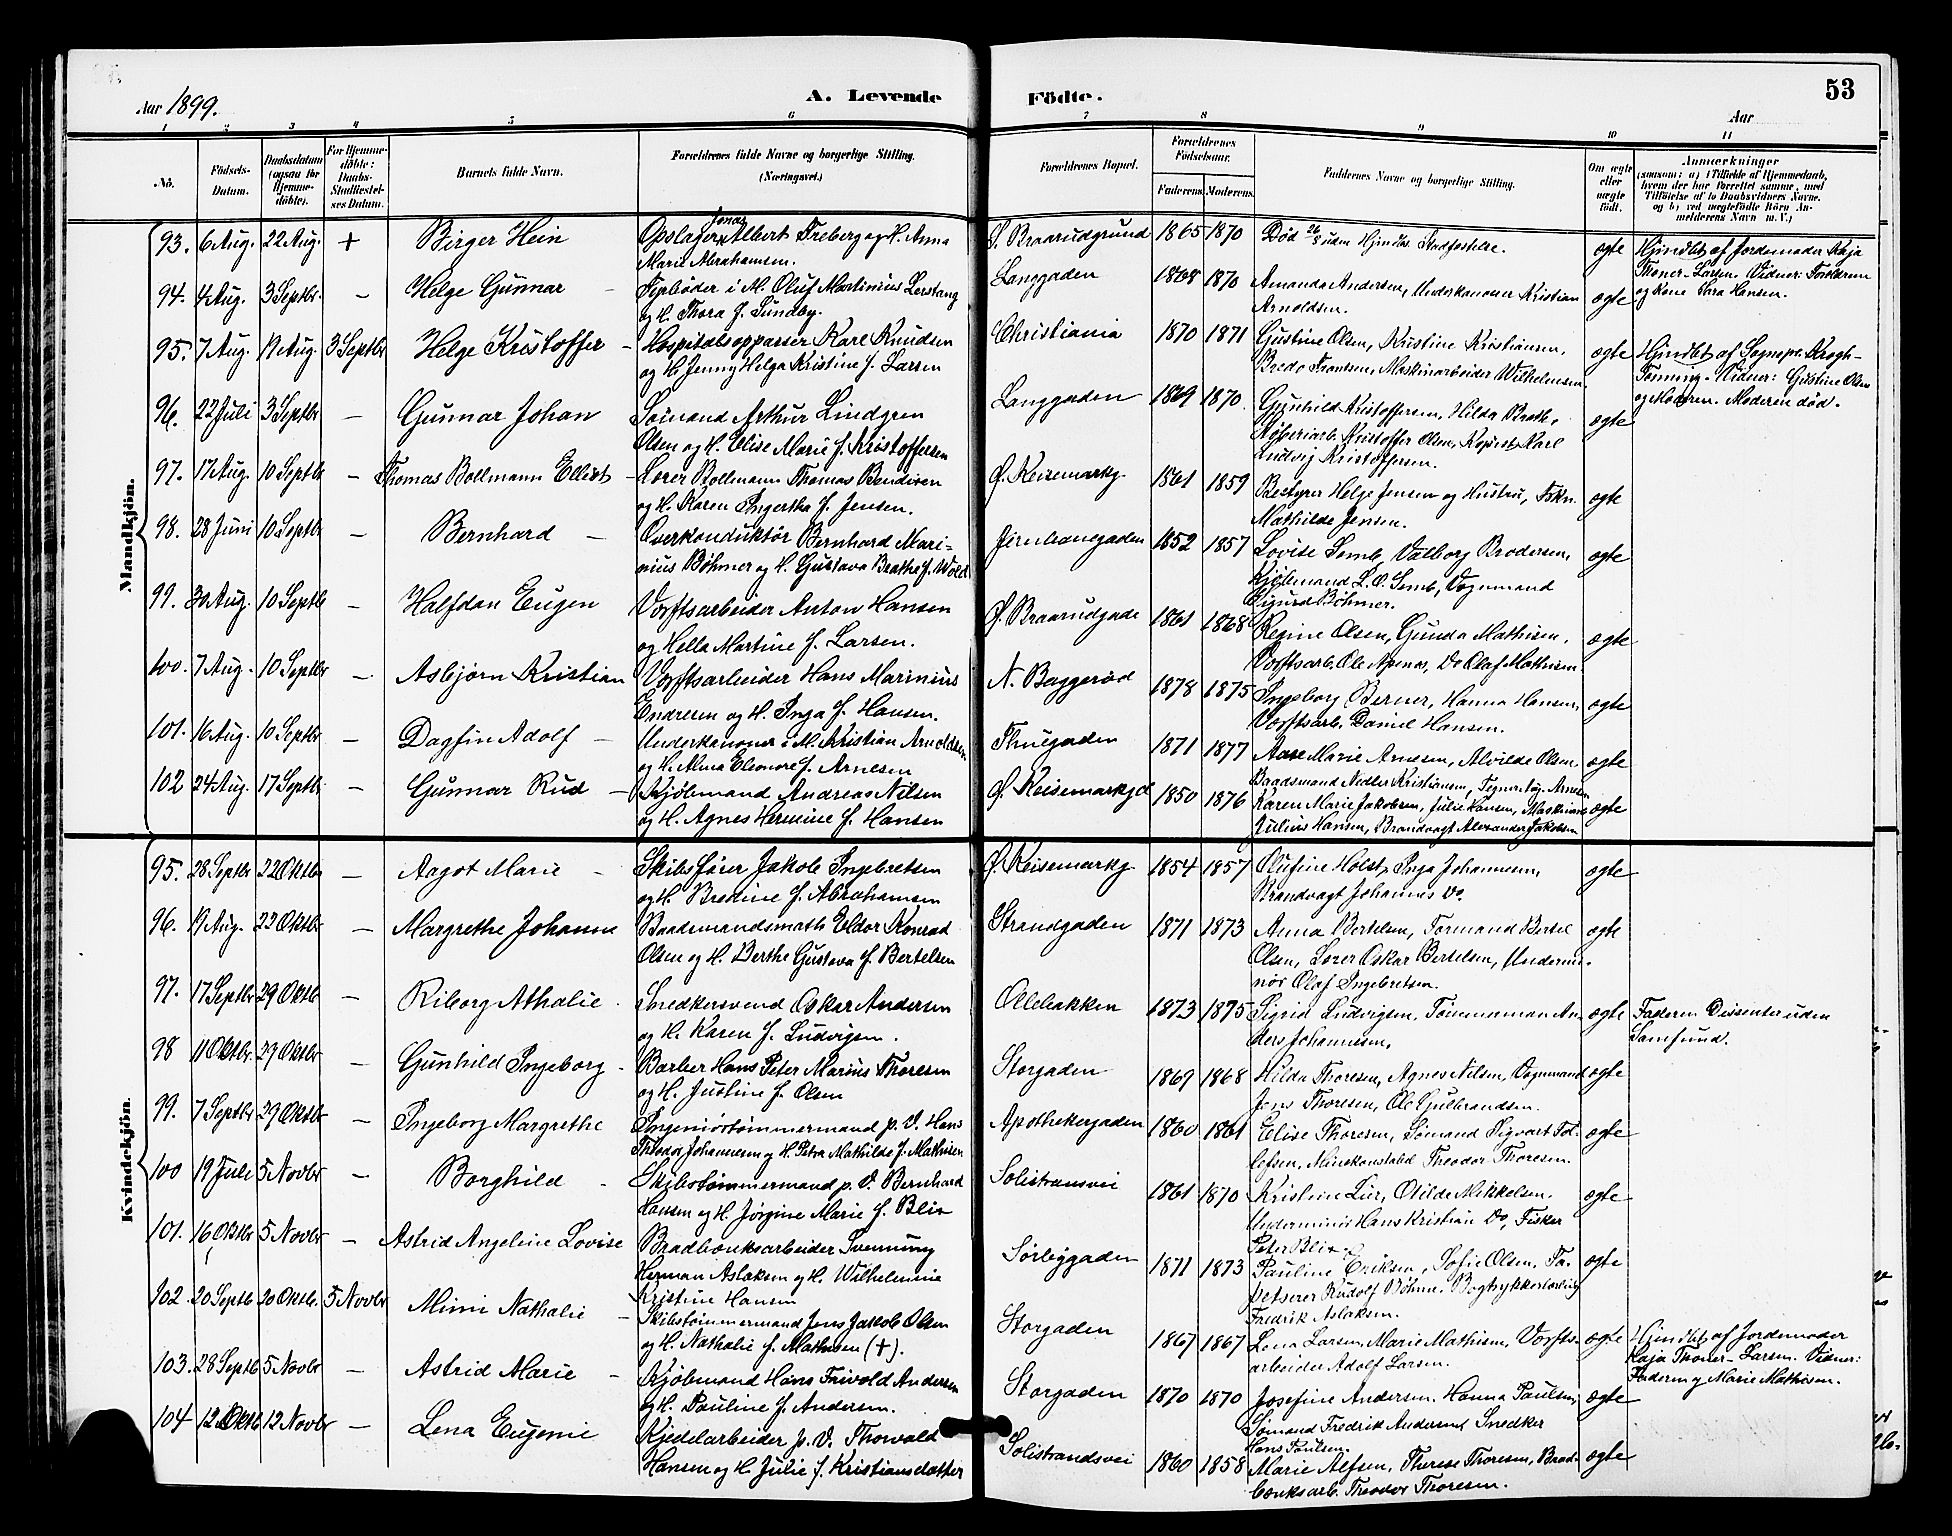 53
Aar 1899.
A. Levende
Födte.
Aar
1 2 3 4 5 6 7 8 9 10 11
No.
Födsels-
Datum.
Daabsdatum
(ogsaa for
Hjemme-
döbte).
For Hjemme-
döbte:
Daabs-
Stadfæstel-
ses Datum.
Barnets fulde Navn.
Forældrenes fulde Navne og borgerlige Stilling.
(Næringsvei.)
Forældrenes Bopæl.
Forældrenes
Födselsaar.
Faderens.
Moderens.
Faddernes Navne og borgerlige Stilling.
Om ægte
eller
uægte
födt.
Anmærkninger
(saasom: a) i Tilfælde af Hjemmedaab,
hvem der har forrettet samme, med
Tilföielse af to Daabsvidners Navne,
og b) ved uægtefödte Börn An-
melderens Navn m. V.)
Mandkjön.
93. 6 Aug. 22 Aug. + Birger Hein
Opslager Jonas Albert Freberg og H. Anna
Marie Abrahamsen.
S. Braarudgrund 1865 1870 Död 26/8 uden Hjmdbs. Stadfæstelse. ægte
Hjmdbt af Jordemoder Kaja
Thoner-Larsen. Vidner: Forældrene
og Kone Sara Hansen.
94. 4 Aug. 3 Septbr. – Helge Gunnar –
i M. Oluf Martinius Lerstang
og H. Thora f. Sundby.
Langgaden 1868 1870 Amanda Andersen, Underkanoner Kristian
Arnoldsen. ægte
95. 7 Aug. 19 Aug. 3 Septbr Helge Kristoffer –
Hospitalsopparser Karl Knudsen
og H. Jenny Helga Kristine f. Larsen
Christiania 1870 1871 Gustine Olsen, Kristine Kristiansen,
Bredo Frantsen, Maskinarbeider Wilhelmsen. ægte
Hjmdbt af Sognepr. Krogh-
Tonning. Vidner: Gustine Olsen
og Moderen. Moderen död.
96. 22 Juli 3 Septbr – Gunnar Johan
Sömand Arthur Lindgren
Olsen og H. Elise Marie f. Kristoffersen
Langgaden 1869 1870. Gunhild Kristoffersen, Hilda Bradt,
Kristoffer Olsen, Karl
Ludvig Kristoffersen. ægte
97. 17 Aug. 10 Septbr – Thomas Bollmann Ellert –
Lærer Bollmann Thomas Bendixen
og H. Karen Ingertha f. Jensen.
Ø. Keisemarkg. 1861 1859 Bestyrer Helge Jensen og Hustru, Frkn.
Mathilde Jensen. ægte
98. 28 Juni 10 Septbr – Bernhard –
Overkonduktör Bernhard Mari-
nius Böhmer og H. Gustava Brathe f. Wold
Jernbanegaden 1852 1857 Lovise Semb, Valborg Brodersen,
Kjöbmand L. O. Semb, Vognmand
Sigurd Böhmer. ægte
99. 30 Aug. 10 Septb – Halfdan Eugen
Værftsarbeider Anton Hansen
og Hella Martine f. Larsen.
Ø. Braarudgade 1861 1868 Regine Olsen, Gunda Mathisen,
Værftsarb. Ole Apenæs, Do Olaf Mathisen ægte
100. 7 Aug. 10 Septbr – Asbjørn Kristian
Værftsarbeider Hans Marinius
Endresen og H. Inga f. Hansen.
N. Baggeröd 1878 1875 Ingeborg Berner, Hanna Hansen,
Værftsarb. Daniel Hansen. ægte
101. 16 Aug. 10 Septbr – Dagfin Adolf –
Underkanoner i M. Kristian Arnoldsen
og H. Alma Eleonore f. Arnesen
Thuegaden 1871 1877 Aase Marie Arnesen, Alvilde Olsen
Baadsmand Kristiansen, Arnesen ægte
102 24 Aug. 17 Septbr – Gunnar Rud –
Kjöbmand Andreas Nilsen
og H. Agnes Hermine f. Hansen
Ø. Keisemarkgd 1850 1876 Karen Marie Jakobsen, Julie Hansen, Maskinass
Julius Hansen, Brandvagt Alexander Jakobsen ægte
Kvindekjön.
95. 28 Septbr 22 Oktbr – Aagot Marie –
Skibsförer Jakob Ingebretsen
og H. Bredine f. Abrahamsen
Ø. Keisemarkg. 1854 1857 Olufine Holst, Inga Johannesen,
Brandvagt Johannes Do ægte
96. 19 Aug. 22 Oktbr – Margrethe Johanne
Baademandsmath Eldor Konrad
Olsen og H. Berthe Gustava f. Bertelsen
Strandgaden 1871 1873 Anna Bertelsen, Formand Bertel
Olsen, Lærer Oskar Bertelsen, Undermi-
nör Olaf Ingebretsen. ægte
97. 17 Septbr 29 Oktb – Riborg Athalie
Snedkersvend Oskar Andersen
og H. Karen f. Ludvigsen.
Ollebakken 1873 1875 Sigrid Ludvigsen, Tömmerman An-
ders Johannesen, ægte
Faderen Dissenter uden
Samfund.
98 11 Oktbr. 29 Oktbr – Gunhild Ingeborg –
Barber Hans Peter Marius Thoresen
og H. Justine f. Olsen
Storgaden 1869 1868 Hilda Thoresen, Agnes Nilsen, Vognmand
Jens Thoresen, Ole Gulbrandsen. ægte
99. 7 Septbr 29 Oktbr – Ingeborg Margrethe
Ingeniörtömmermand p. V. Hans
Theodor Johannesen og H. Petra Mathilde f. Mathisen
Apothekergaden 1860 1861 Elise Thoresen, Sömand Sigvart Tol-
lefsen, Minekonstabel Theodor Thoresen. ægte
100 19 Juli 5 Novbr – Borghild –
Skibstömmermand p. V. Bernhard
Hansen og H. Jörgine Marie f. Blix
Solistransvei 1861 1870 Kristine Lur, Otilde Mikkelsen.
Underminör Hans Kristian Do, Fisker
Peter Blix. ægte
101. 16 Oktbr 5 Novbr – Astrid Angeline Lovise
Bradbænksarbeider Svennung
Herman Aslaksen og H. Wilhelmine
Kristine Hansen
Sörbyggaden 1871 1873 Pauline Eriksen, Sofie Olsen, Ta-
petserer Rudolf Böhme, Bogtrykkerlærling
Fredrik Aslaksen. ægte
102. 20 Septb 20 Oktbr. 5 Novbr Mimi Nathalie –
Skibstömmermand Jens Jakob Olsen
og H. Nathalie f. Mathisen (+).
Storgaden 1867 1867 Lena Larsen, Marie Mathisen, Værfts-
arbeider Adolf Larsen. ægte
Hjmdbt af Jordemoder
Kaja Thoner-Larsen. Vidner:
Faderen og Marie Mathisen.
103. 28 Septb 5 Novbr – Astrid Marie –
Kjöbmand Hans Frivold Andersen
og H. Pauline f. Andersen.
Storgaden 1870 1870 Josefine Andersen, Hanna Paulsen,
Sömand Fredrik Andersen, Snedker
Hans Paulsen. ægte
104 12 Oktb. 12 Novbr – Lena Eugenie
Kjedelarbeider p. V. Thorvald
Hansen og H. Julie f. Kristiansdatter
Solistrandsvei 1860 1858 Marie Alfsen, Therese Thoresen, Brad-
bænksarb. Theodor Thoresen. ægte